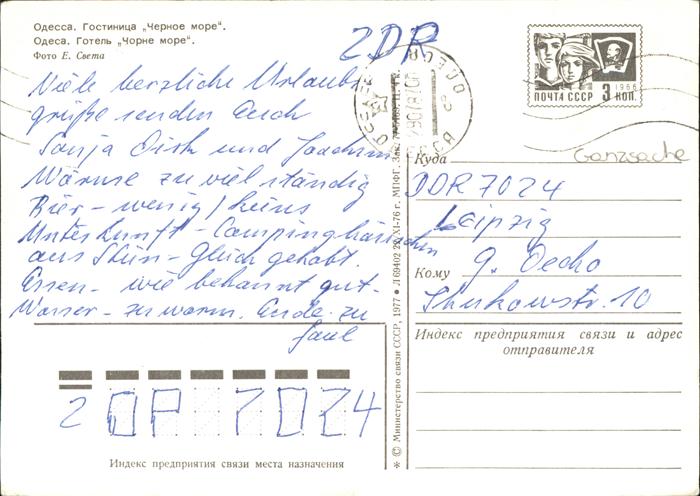 Одесса. Гостиница „Черное море“.
Одеса. Готель „Чорне море“.
Фото Е. Света
ZDR
Viele herzliche Urlaubs-
grüße senden Euch
Sonja Dirk und Joachim
Wärme zu viel ständig
Bier - wenig / keins
Unterkunft - Campinghäuschen
aus Stein - Glück gehabt.
Essen - wie bekannt gut -
Wasser - zu warm. Ende zu
faul
2 DP 7024
Индекс предприятия связи места назначения
* © Министерство связи СССР, 1977 • Л 69402 29/XI-76 г. МПФГ.
ПОЧТА СССР 3 КОП.
1966
Ganzsache
Куда
DDR 7024
Leipzig
Кому
Shukowstr. 10
Индекс предприятия связи и адрес
отправителя